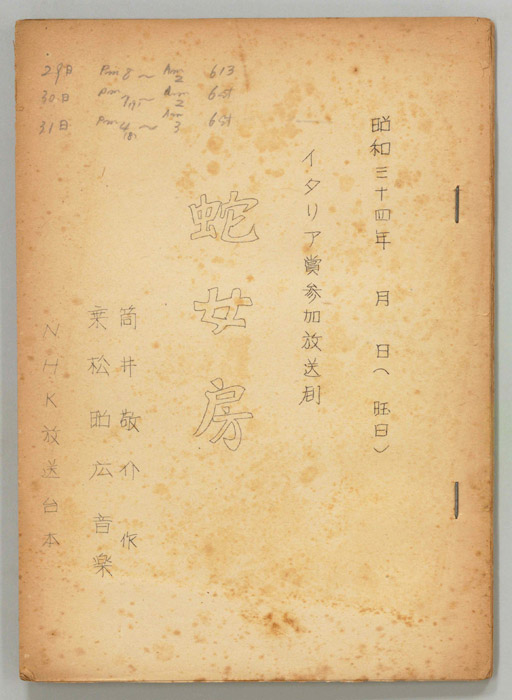 昭和三十四年　月　日（　旺日）
イタリア賞参加放送劇
蛇女房
筒井敬介　作
乗松昭広　音楽
NHK放送台本
29日　Pm 8〜Am 2　613
30日　Pm 7〜Am 2　6st
31日　Pm 4〜Am 3　6st